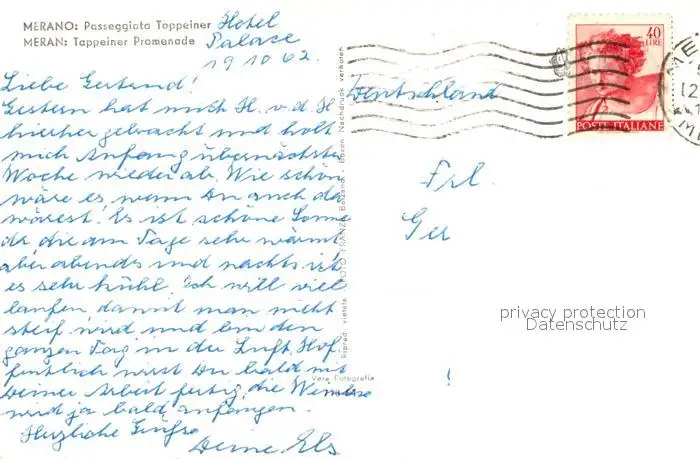 MERANO: Passeggiata Tappeiner
MERAN: Tappeiner Promenade
Hotel
Palace
19 10 62.
Liebe Gertrud!
Gestern hat mich H. v. d. H
hierher gebracht und holt
mich Anfang übernächster
Woche wieder ab. Wie schön
wäre es, wenn Du auch da
wärest. Es ist schöne Sonne
da, die am Tage sehr wärmt,
aber abends und nachts ist
es sehr kühl. Ich will viel
laufen, damit man nicht
steif wird und bin den
ganzen Tag in der Luft. Hof-
fentlich wirst Du bald mit
Deiner Arbeit fertig, die
wird ja bald anfangen.
Herzliche Grüße
Deine Els
FOTO FRANZ Bolzano - Bozen Nachdruck verboten
Ripred. vietata
Vera Fotografia
40
LIRE
POSTE ITALIANE
Deutschland
Frl.
Ger
!
privacy protection
Datenschutz